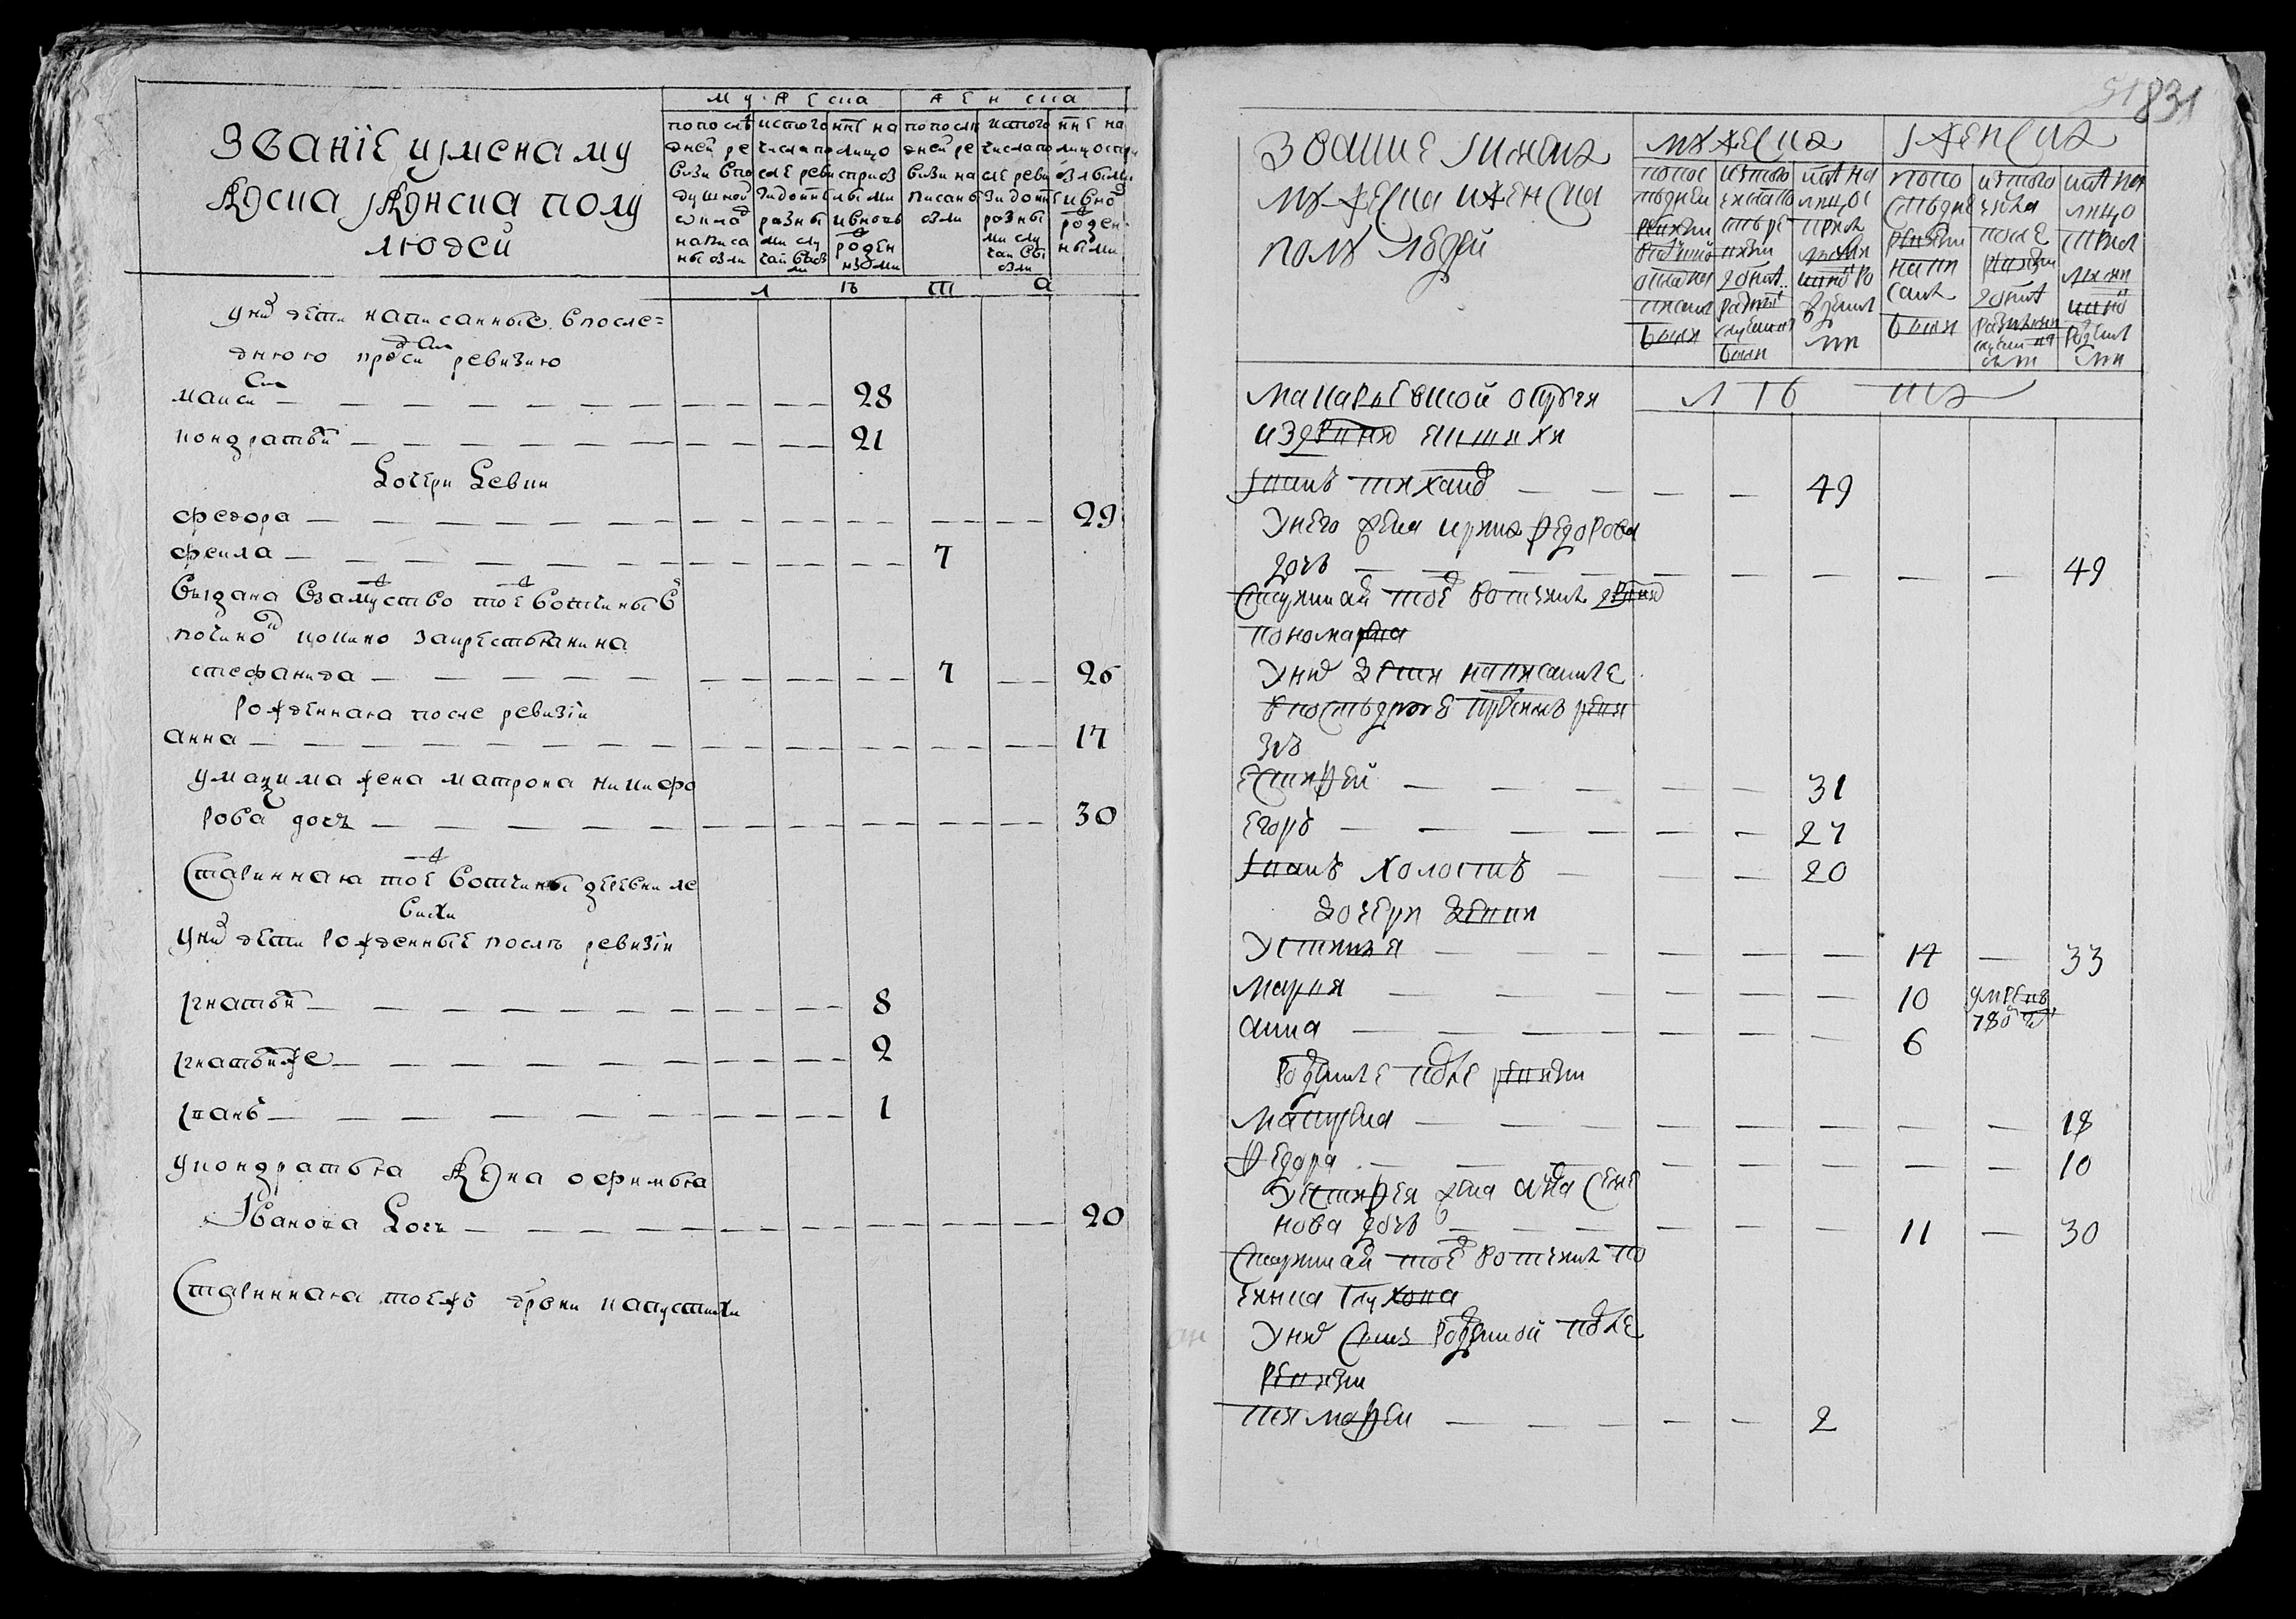 званіе и имена му
жеска и женска полу
людей
мужеска
женска
по после
дней ре
визи в по
душной
оклад
написа
ны были
ис того
числа по
сле реви
зи до нне
разны
ми слу
чаи выб
ли
нне на
лицо
с приб
лыми
и вновь
рожден
ными
по после
дней ре
визи на
писаны
были
ис того
числа по
сле реви
зи до нне
разны
ми слу
чаи вы
были
нне на
лицо с при
былыми
и вно
рожден
ными
лѣта
у них дети написанные в после=
днюю пред сим ревизию
максим — 28
кондратьи — 21
дочери девки
федора — 29
фекла — 7
выдана в замужство тое ж вотчины в
починок за крестьянина
стефанида — 7 — 26
рожденная после ревизіи
анна — 17
у максима жена матрона никифо
рова дочь — 30
старинная тое ж вотчины деревни ле
вихи
у них дети рожденные послѣ ревизіи
игнатьи — 8
игнатьи же — 2
иванъ — 1
у кондратья жена офимья
Иванова дочь — 20
старинная тое жъ дрвни капустихи
831
звание и имена
мужеска и женска
полу людей
мужеска
женска
по пос
лѣдней
ревизии
в душной
оклад на
писаны
были
ис того
числа по
слѣ ре
визии
до нне
разными
случаи
были
нне на
лицо с
прибы
лыми
и вно ро
жденны
ми
по по
слѣдне
ревизии
напи
саны
были
ис того
числа
после
ревизии
до нне
разными
нне на
лицо
с прибы
лыми
и вно
рожденны
ми
лѣта
макарьевской округи
из дрвни
иванъ тихонов — 49
у него жена ирина федорова
дочь — 49
старинная тое ж вотчины дрвни
пономарева
у них дети написанные
в последнюю пред сим реви
зию
естифей — 31
егоръ — 27
иванъ холостъ — 20
дочери девки
устинья — 17 — 33
мария — 10 умре в 780 г
анна — 6
рожденные после ревизии
матрена — 18
федора — 10
у естифея жена анна семе
нова дочь — 11 — 30
старинная тое ж вотчины по
чинка глухова
у них сынъ рожденной после
ревизии
тимофей — 2